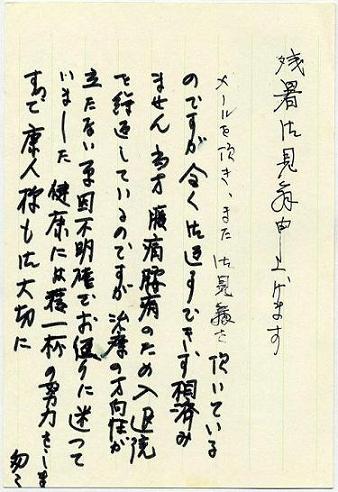 残暑御見舞申上げます
メールを頂き、また御見舞を頂いている
のですが全く御返事できず相済み
ません 当方 腹痛のため入退院
を繰返しているのですが治療の方向性が
立たない原因不明でお便りに迷って
いました 健康には精一杯の努力をしま
す 康人様も御大切に
匆々